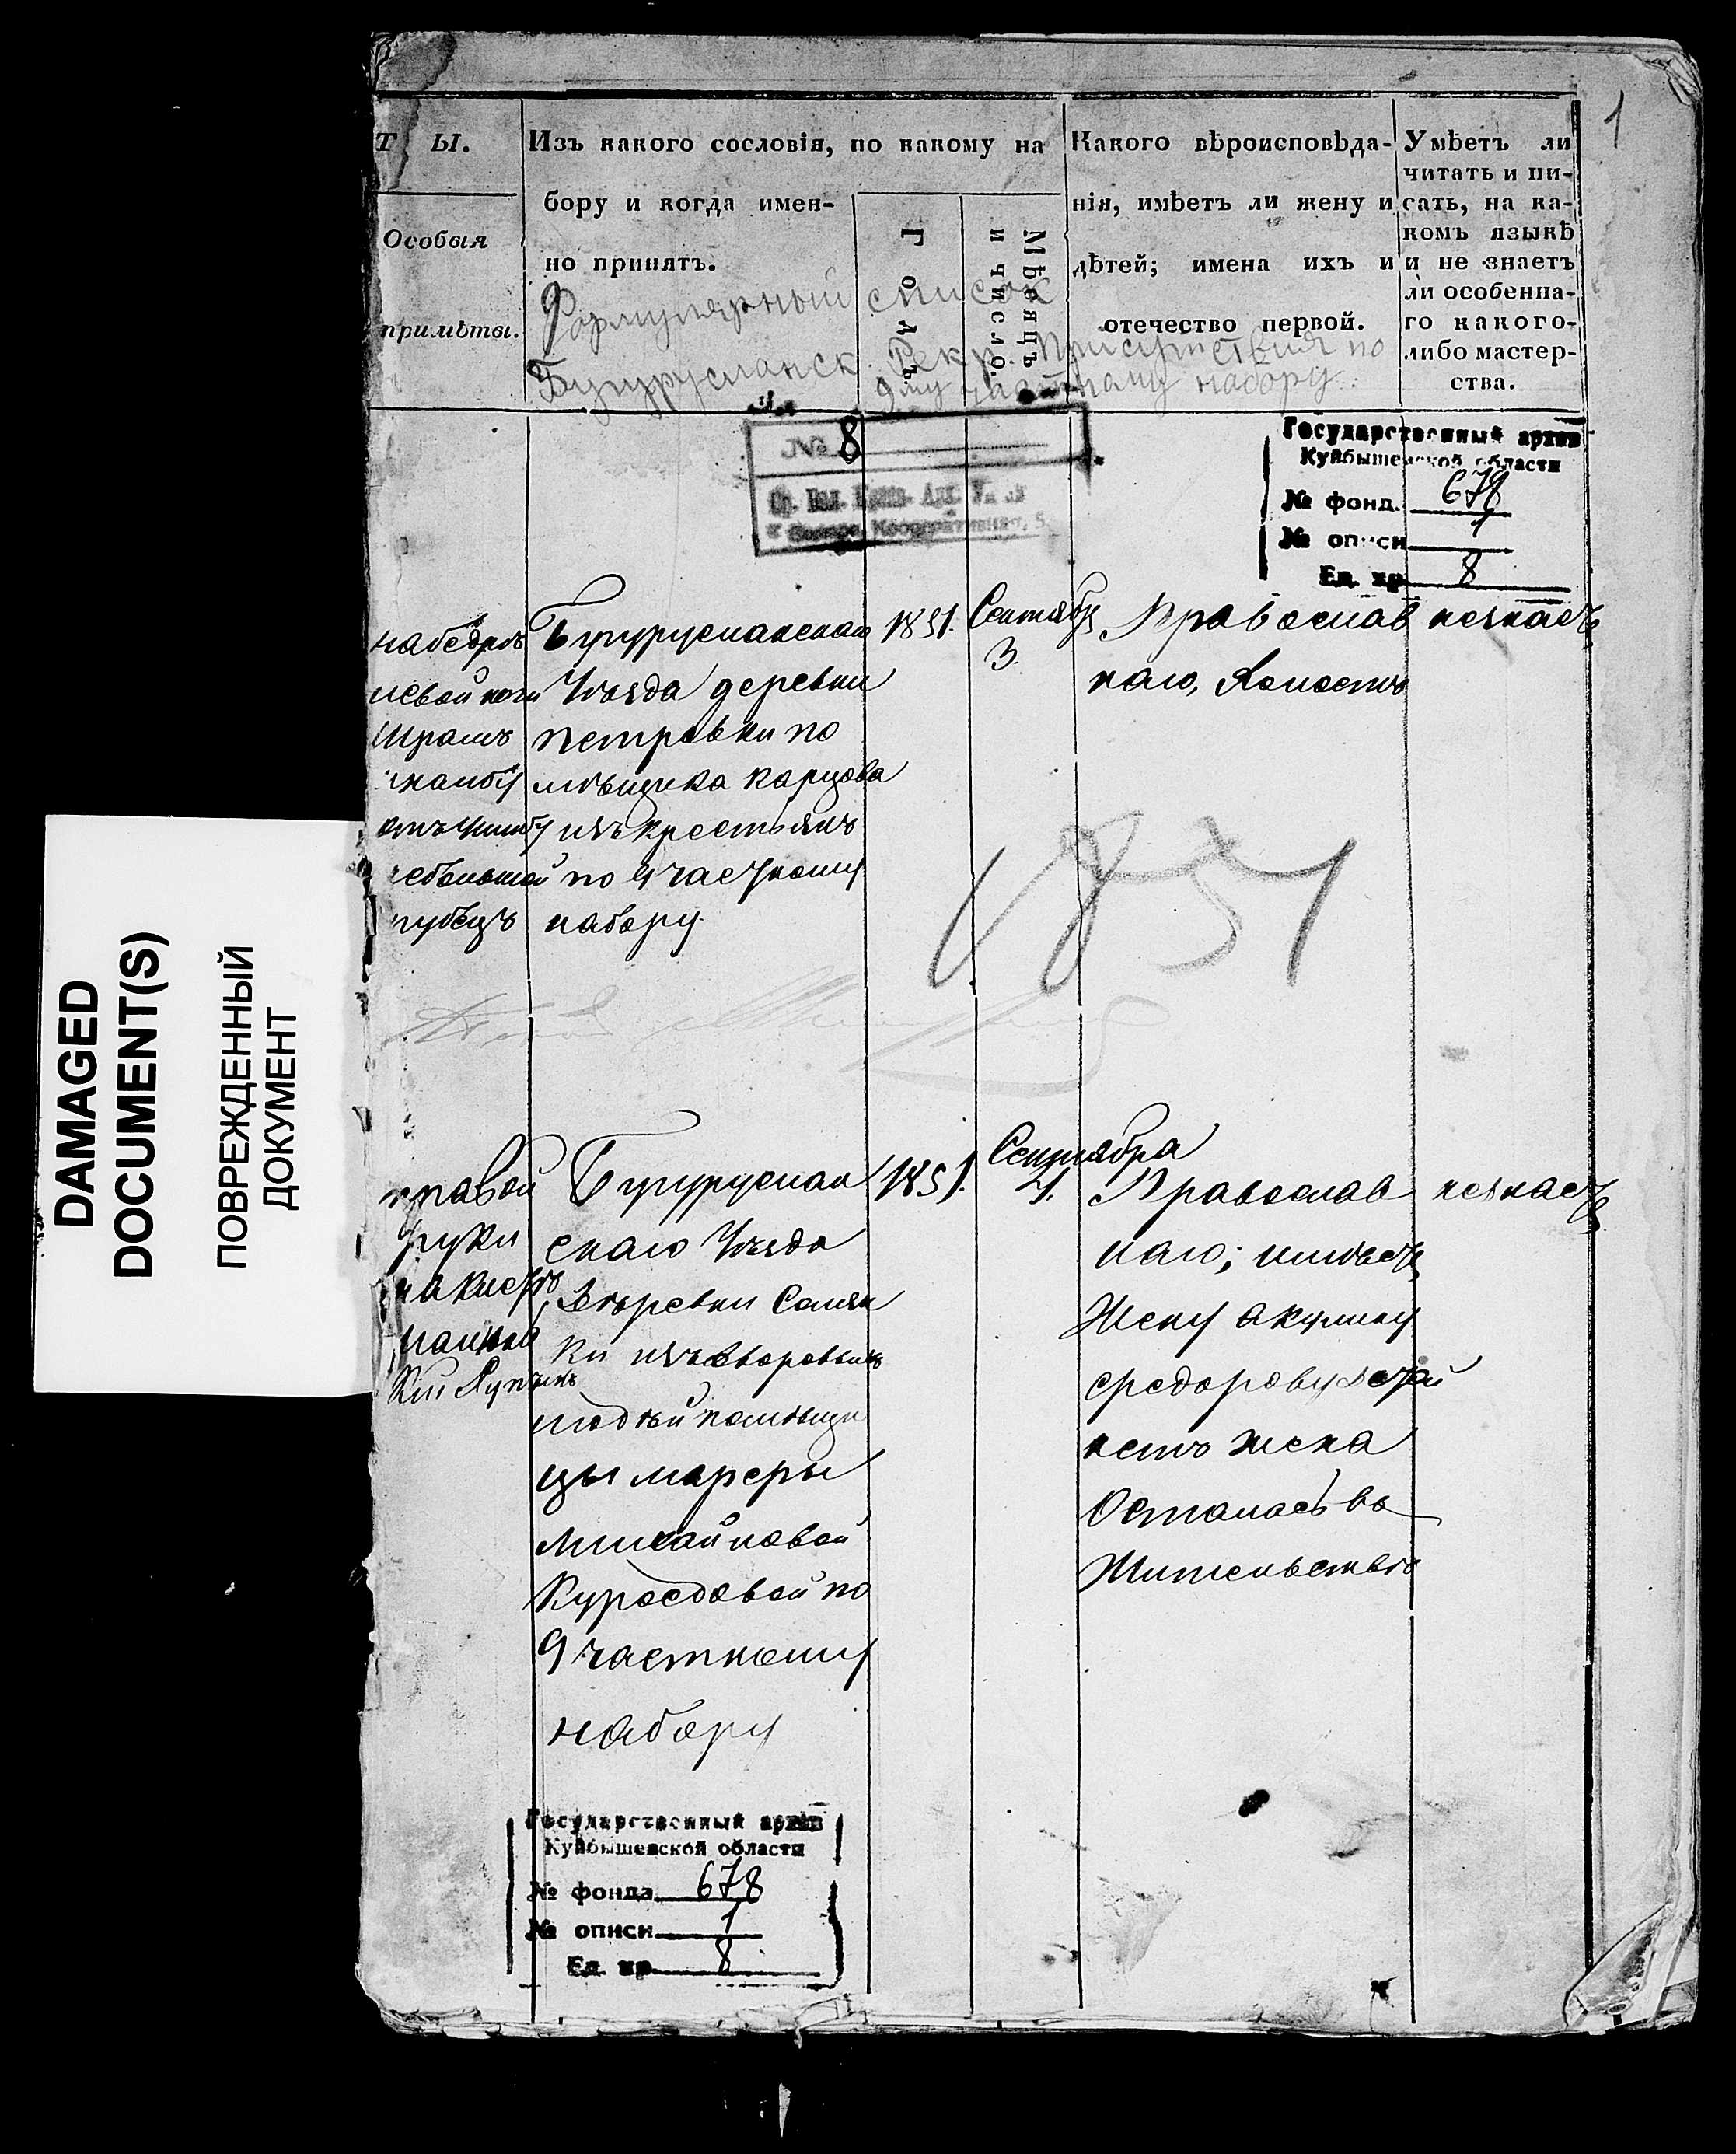 1
Т Ы.
Особыя
примѣты.
Изъ какого сословія, по какому на
бору и когда имен-
но принятъ.
Годъ.
Мѣсяцъ
и число.
Какого вѣроисповѣда-
нія, имѣетъ ли жену и
дѣтей; имена ихъ и
отечество первой.
Умѣетъ ли
читать и пи-
сать, на ка-
комъ языкѣ
и не знаетъ
ли особенна-
го какого-
либо мастер-
ства.
Формулярный список
Бугурусланск. Рекр. Присутствия по
9му частному набору.
№ 8
Ср. Вол. Арх.
Самара, Кооперативная, 5
Государственный архив
Куйбышевской области
№ фонд. 678
№ описи 1
Ед. хр. 8
на бедрѣ
левой ноги
Шрамъ
отъ
небольшой
рубецъ
Бугурусланскаго
Уѣзда деревни
петровки по
мѣщика карцова
изъ крестьянъ
по 9 частному
набору
1851.
Сентября
3.
Православ
наго, Холостъ
незнаетъ
1851
правой
руки
на кисти
Бугуруслан
скаго Уѣзда
деревни
ки изъ дворовыхъ
людей помѣщи
цы марфы
Михайловой
Куроедовой по
9 частному
набору
1851.
Сентября
4.
Православ
наго; имѣетъ
Жену акулину
федорову детей
нетъ жена
Осталась въ
Жительствѣ
незнаетъ
Государственный архив
Куйбышевской области
№ фонда 678
№ описи 1
Ед. хр. 8
DAMAGED
DOCUMENT(S)
ПОВРЕЖДЕННЫЙ
ДОКУМЕНТ